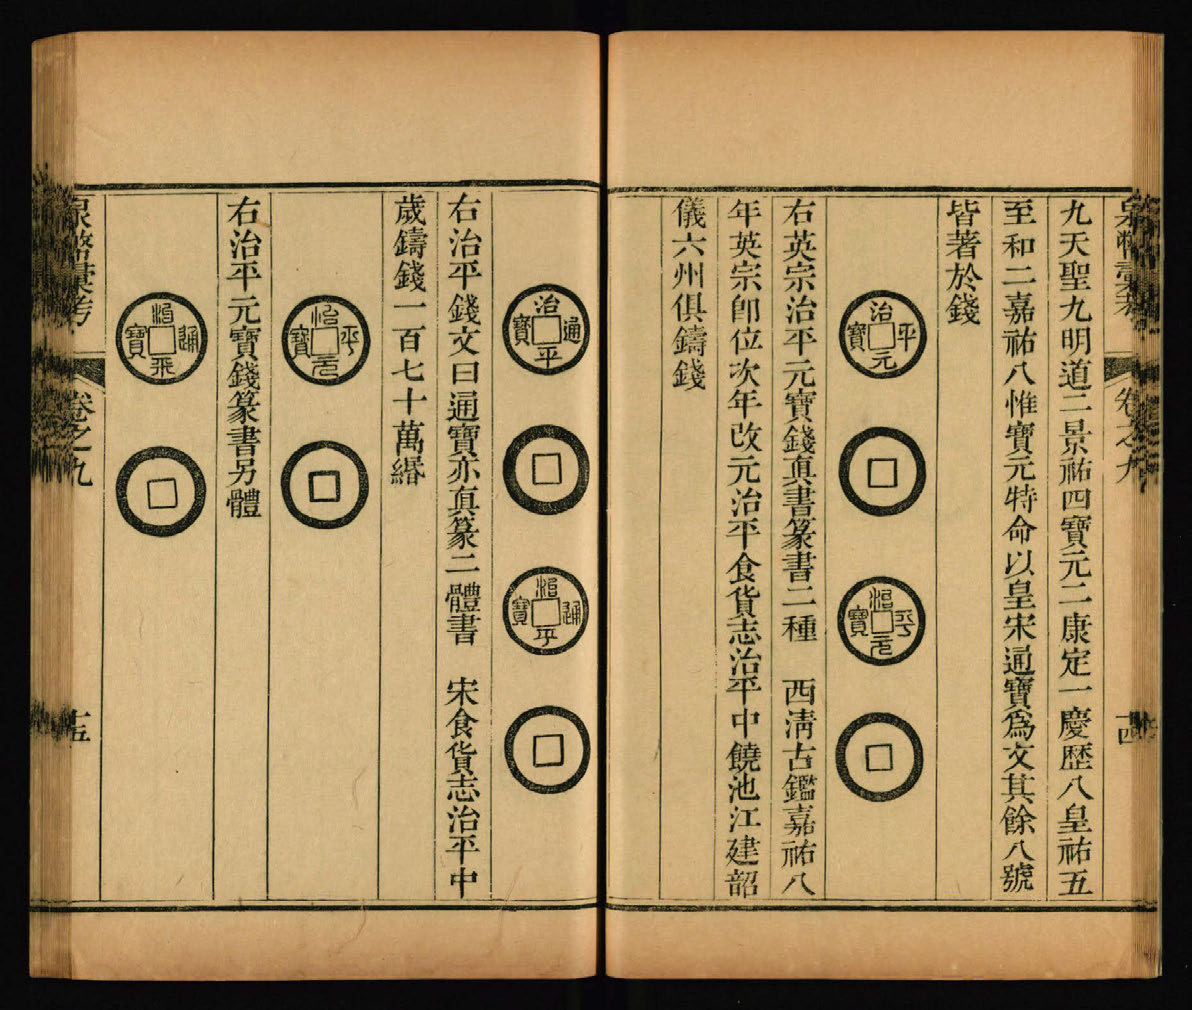 九天聖九明道二景祐四寶元二康定一慶歷八皇祐五
至和二嘉祐八惟寶元特命以皇宋通寶爲文其餘八號
皆著於錢
治平元寶
治平元寶
右英宗治平元寶錢眞書篆書二種　西淸古鑑嘉祐八
年英宗卽位次年改元治平食貨志治平中饒池江建韶
儀六州俱鑄錢
治平通寶
治平通寶
右治平錢文曰通寶亦眞篆二體書　宋食貨志治平中
歲鑄錢一百七十萬緡
治平元寶
右治平元寶錢篆書另體
治平通寶
泉幣彙考
卷之九
十五